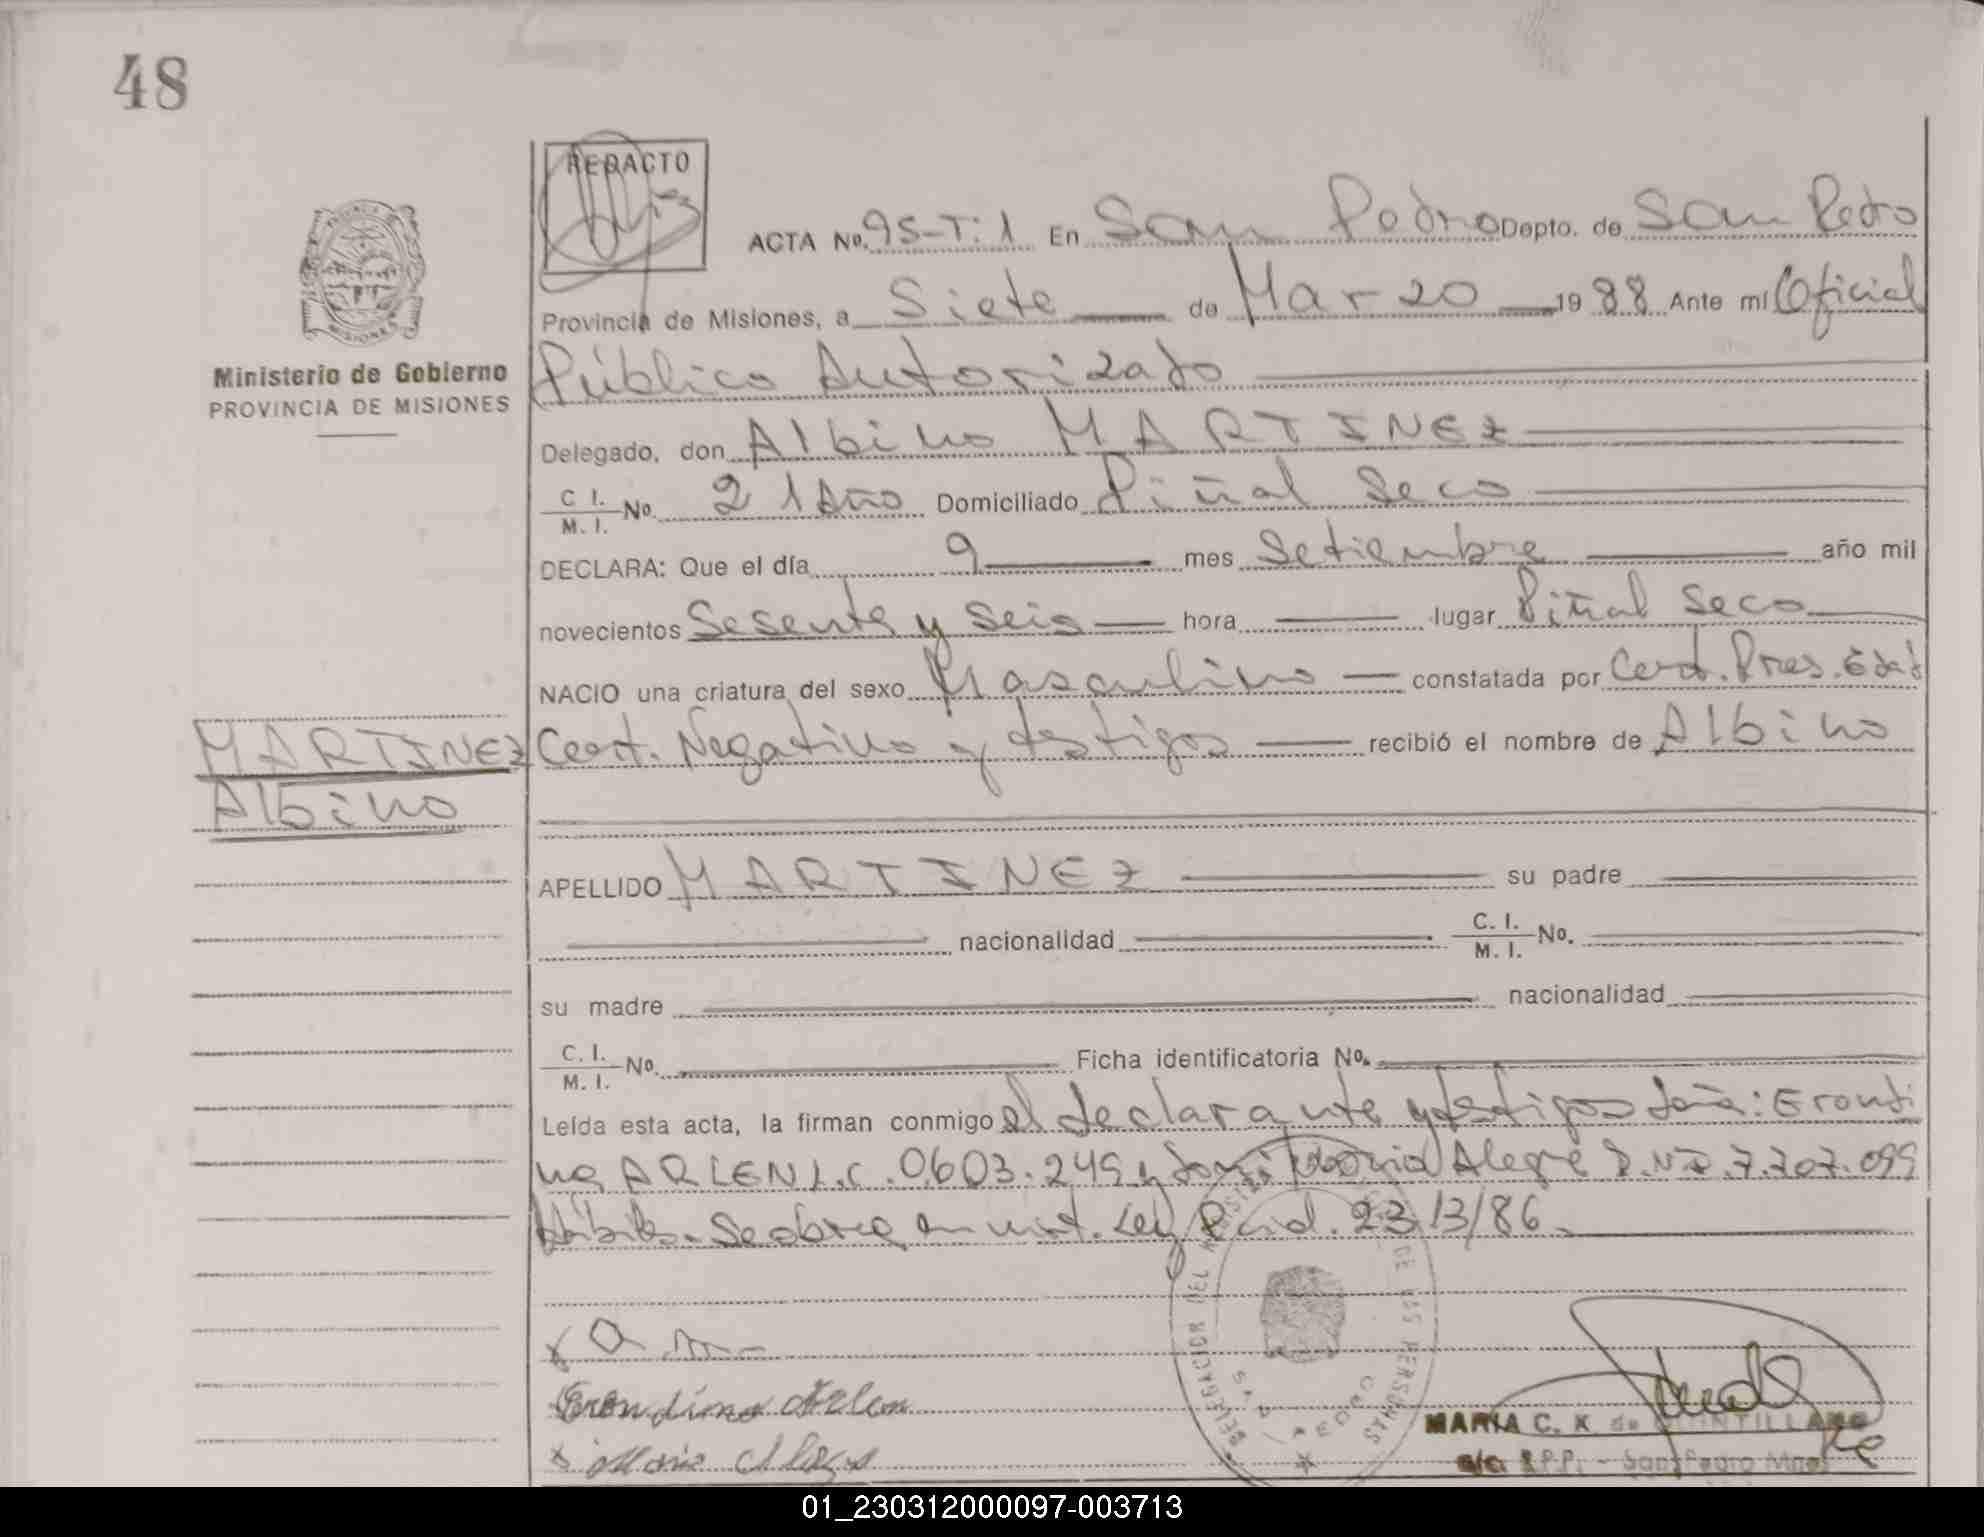 48
REDACTO
ACTA No. 95-T:1 En San Pedro Depto. de San Pedro
Provincia de Misiones, a Siete de Marzo 1988 Ante mí Oficial
Ministerio de Gobierno
PROVINCIA DE MISIONES
Público Autorizado
Delegado, don Albino MARTINEZ
C. I. / M. I. No. 21 Año Domiciliado Piñal Seco
DECLARA: Que el día 9 mes Setiembre año mil
novecientos Sesenta y Seis hora lugar Piñal Seco
NACIO una criatura del sexo Masculino constatada por Cert. Pres. Edad
MARTINEZ
Albino
Cert. Negativo y testigos recibió el nombre de Albino
APELLIDO MARTINEZ su padre
nacionalidad C. I. / M. I. No.
su madre nacionalidad
C. I. / M. I. No. Ficha identificatoria No.
Leída esta acta, la firman conmigo el declarante y testigos doña: Eronti
na ARLEN L.C. 0.603.249 y Alegre D.N.I. 7.707.099
Hábiles. Se labra en virt. Ley 23
/86
DELEGACION DEL REGISTRO DE LAS PERSONAS
SAN PEDRO
Erondina Arlen
MARIA C. K. de QUINTILLANO
a/c. R.P.P. - San Pedro Mnes
01_230312000097-003713